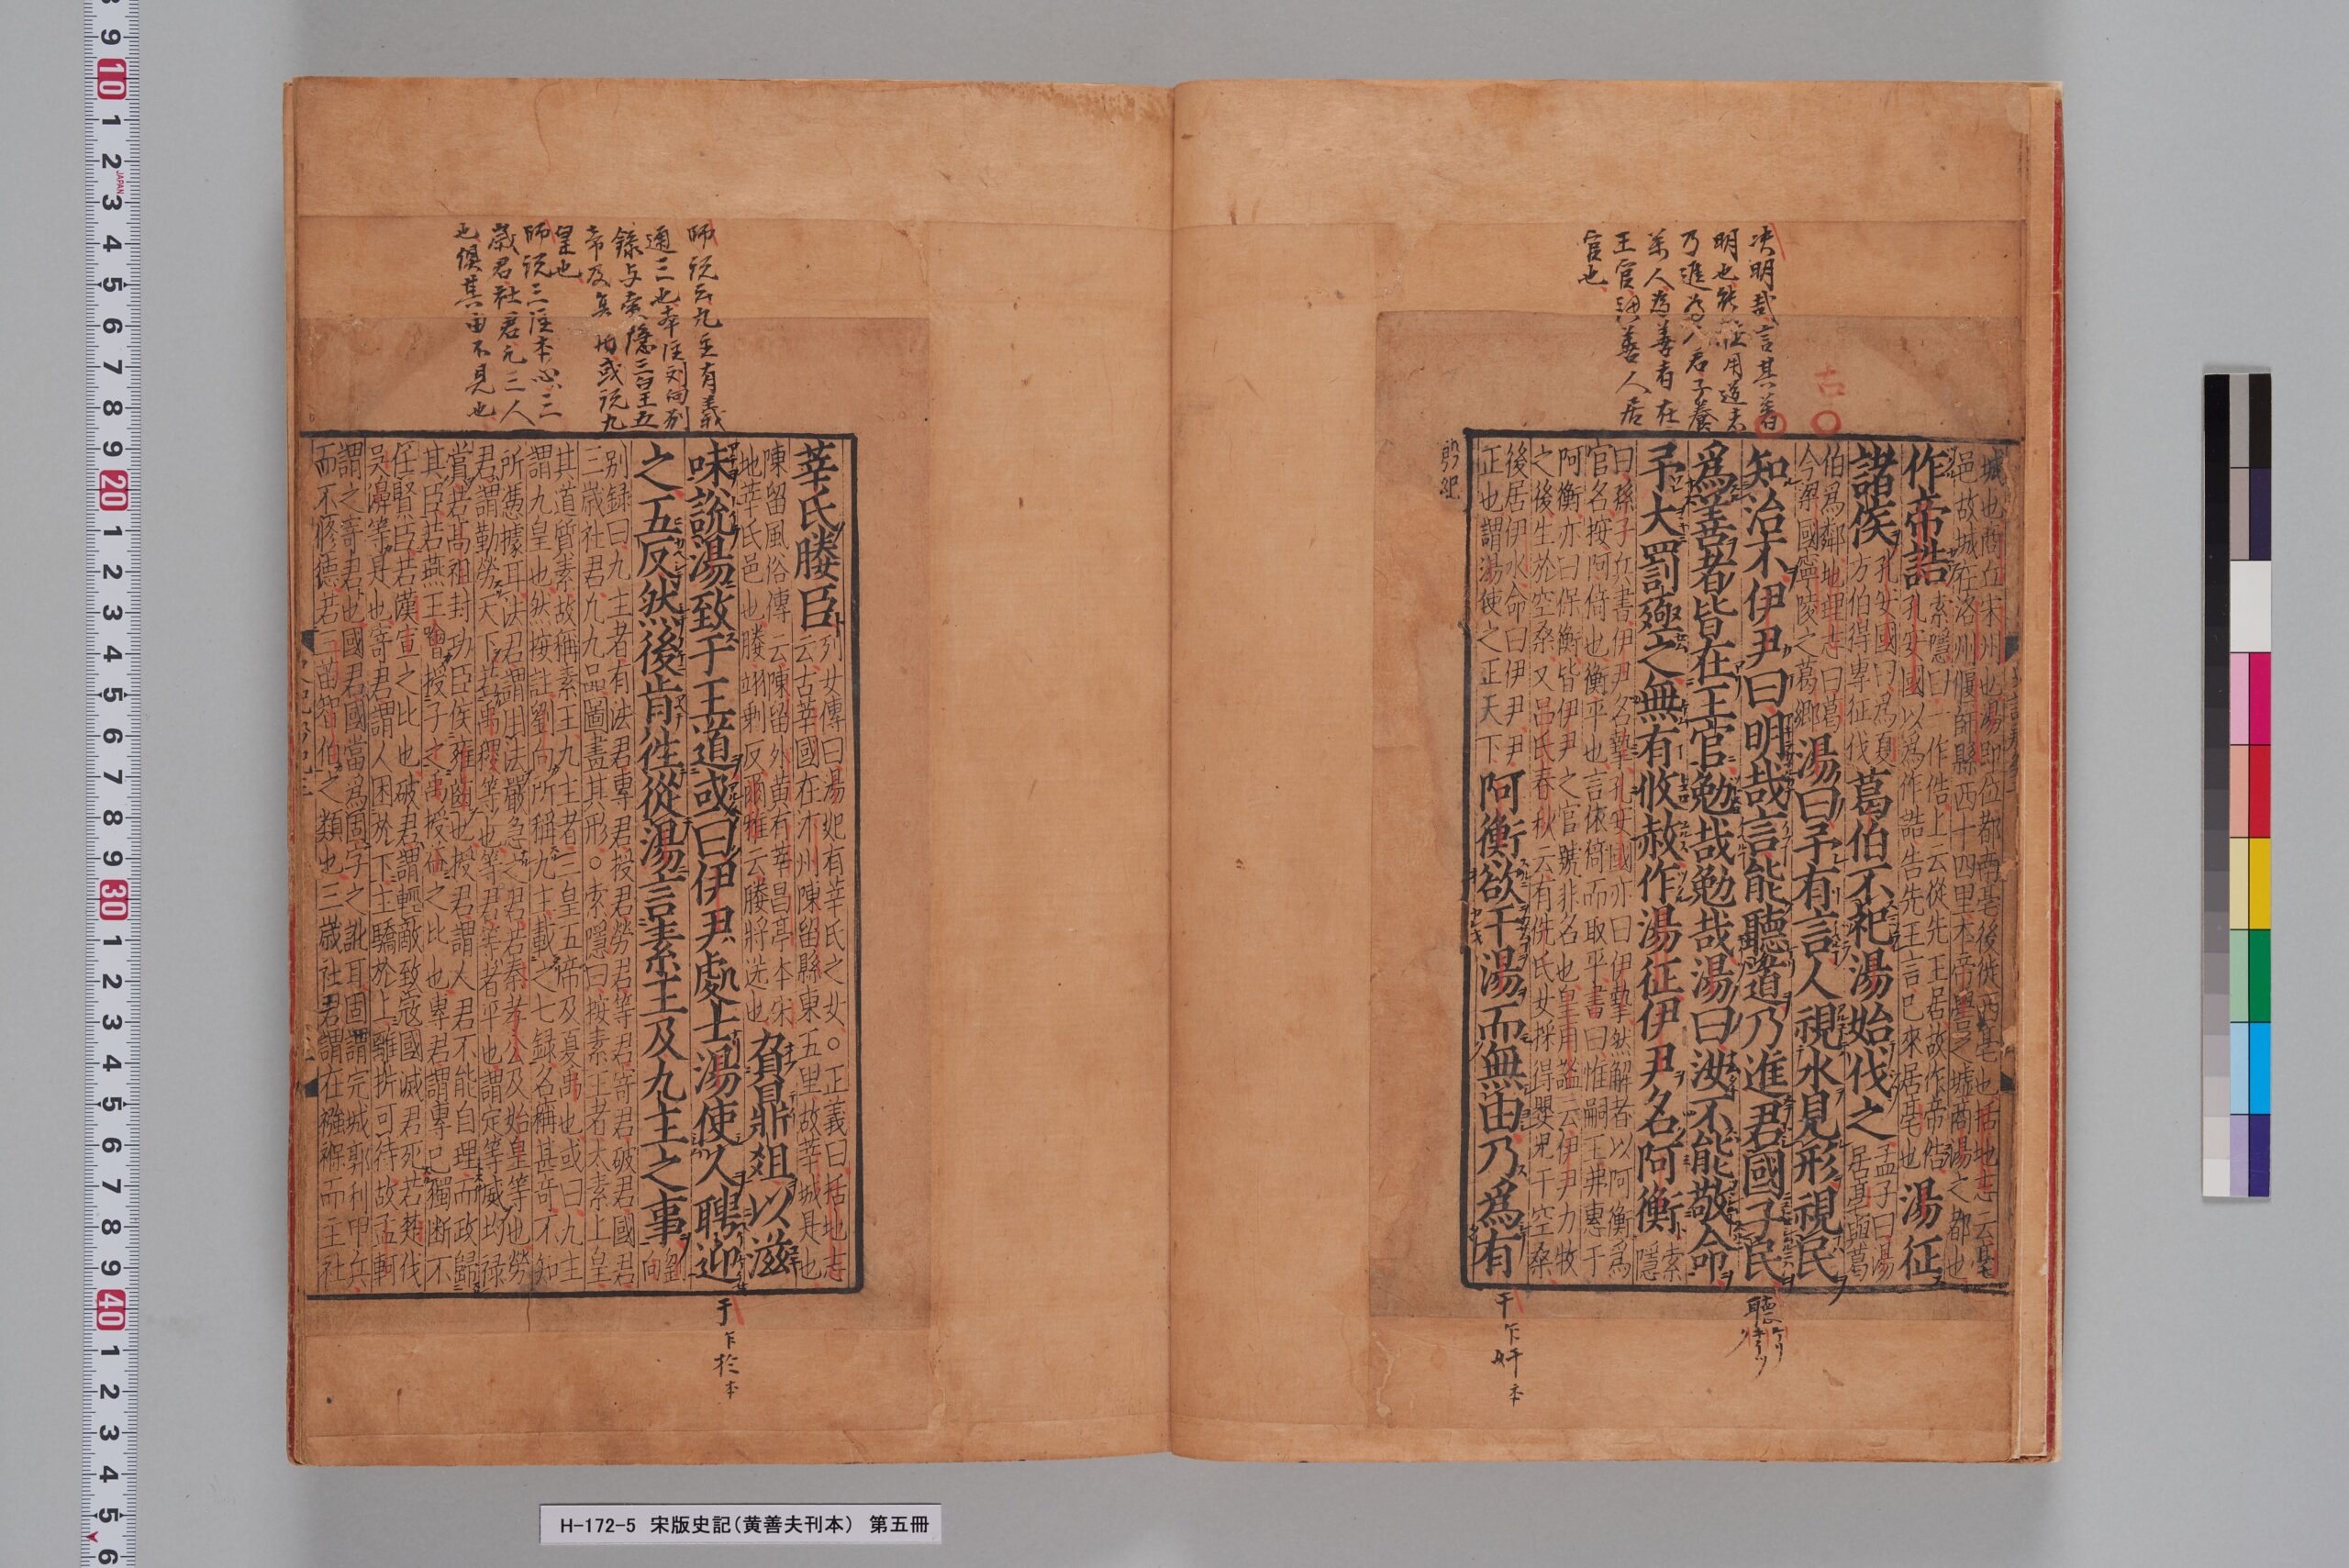 決明哉言其善
明也能任用道者
乃進爲人君子養
萬人爲善者在
王官謂善人居
官也
古
城也商丘宋州也湯即位都南亳後徙西亳也括地志云亳
邑故城在洛州偃師縣西十四里本帝嚳之墟商湯之都也
作帝誥索隱曰一作俈上云從先王居故作帝俈
孔安國以爲作誥告先王言己來居亳也湯征
諸侯孔安國曰爲夏
方伯得專征伐葛伯不祀湯始伐之孟子曰湯
居亳與葛
伯爲鄰地理志曰葛
今梁國寧陵之葛鄉湯曰予有言人視水見形視民
知治不伊尹曰明哉言能聽道乃進君國子民
爲善者皆在王官勉哉勉哉湯曰汝不能敬命
予大罰殛之無有攸赦作湯征伊尹名阿衡索
隱
曰孫子兵書伊尹名摯孔安國亦曰伊摯然解者以阿衡爲
官名按阿倚也衡平也言依倚而取平書曰惟嗣王弗惠于
阿衡亦曰保衡皆伊尹之官號非名也皇甫謐云伊尹力牧
之後生於空桑又呂氏春秋云有侁氏女採得嬰兒于空桑
後居伊水命曰伊尹尹
正也謂湯使之正天下阿衡欲干湯而無由乃爲有
殷紀
聽
干乍奸本
師説云九主有義
通三也本注劉向別
錄与索隱三皇五
帝及夏禹或説九
皇也
師説三注本必三
歲君社君元三人
也俱其由不見也
莘氏媵臣列女傳曰湯妃有莘氏之女○正義曰括地志
云古莘國在汴州陳留縣東五里故莘城是也
陳留風俗傳云陳留外黃有莘昌亭本宋
地莘氏邑也媵翊剩反爾雅云媵將送也負鼎俎以滋
味說湯致于王道或曰伊尹處士湯使人聘迎
之五反然後肯往從湯言素王及九主之事劉
向
別錄曰九主者有法君專君授君勞君等君寄君破君國君
三歲社君凡九品圖畫其形○索隱曰按素王者太素上皇
其道質素故稱素王九主者三皇五帝及夏禹也或曰九主
謂九皇也然按註劉向所稱九主載之七錄名稱甚奇不知
所憑據耳法君謂用法嚴急之君若秦孝公及始皇等也勞
君謂勤勞天下若禹稷等也等君等者平也謂定等威均祿
賞若高祖封功臣侯雍齒也授君謂人君不能自理而政歸
其臣若燕王噲授子之禹授益之比也專君謂專己獨斷不
任賢臣若漢宣之比也破君謂輕敵致寇國滅君死若楚伐
吳濞等是也寄君謂人困於下主驕於上離析可待故孟軻
謂之寄君也國君國當爲固字之訛耳固謂完城郭利甲兵
而不修德若三苗智伯之類也三歲社君謂在襁褓而主社
于乍於本
H-172-5 宋版史記(黄善夫刊本) 第五冊